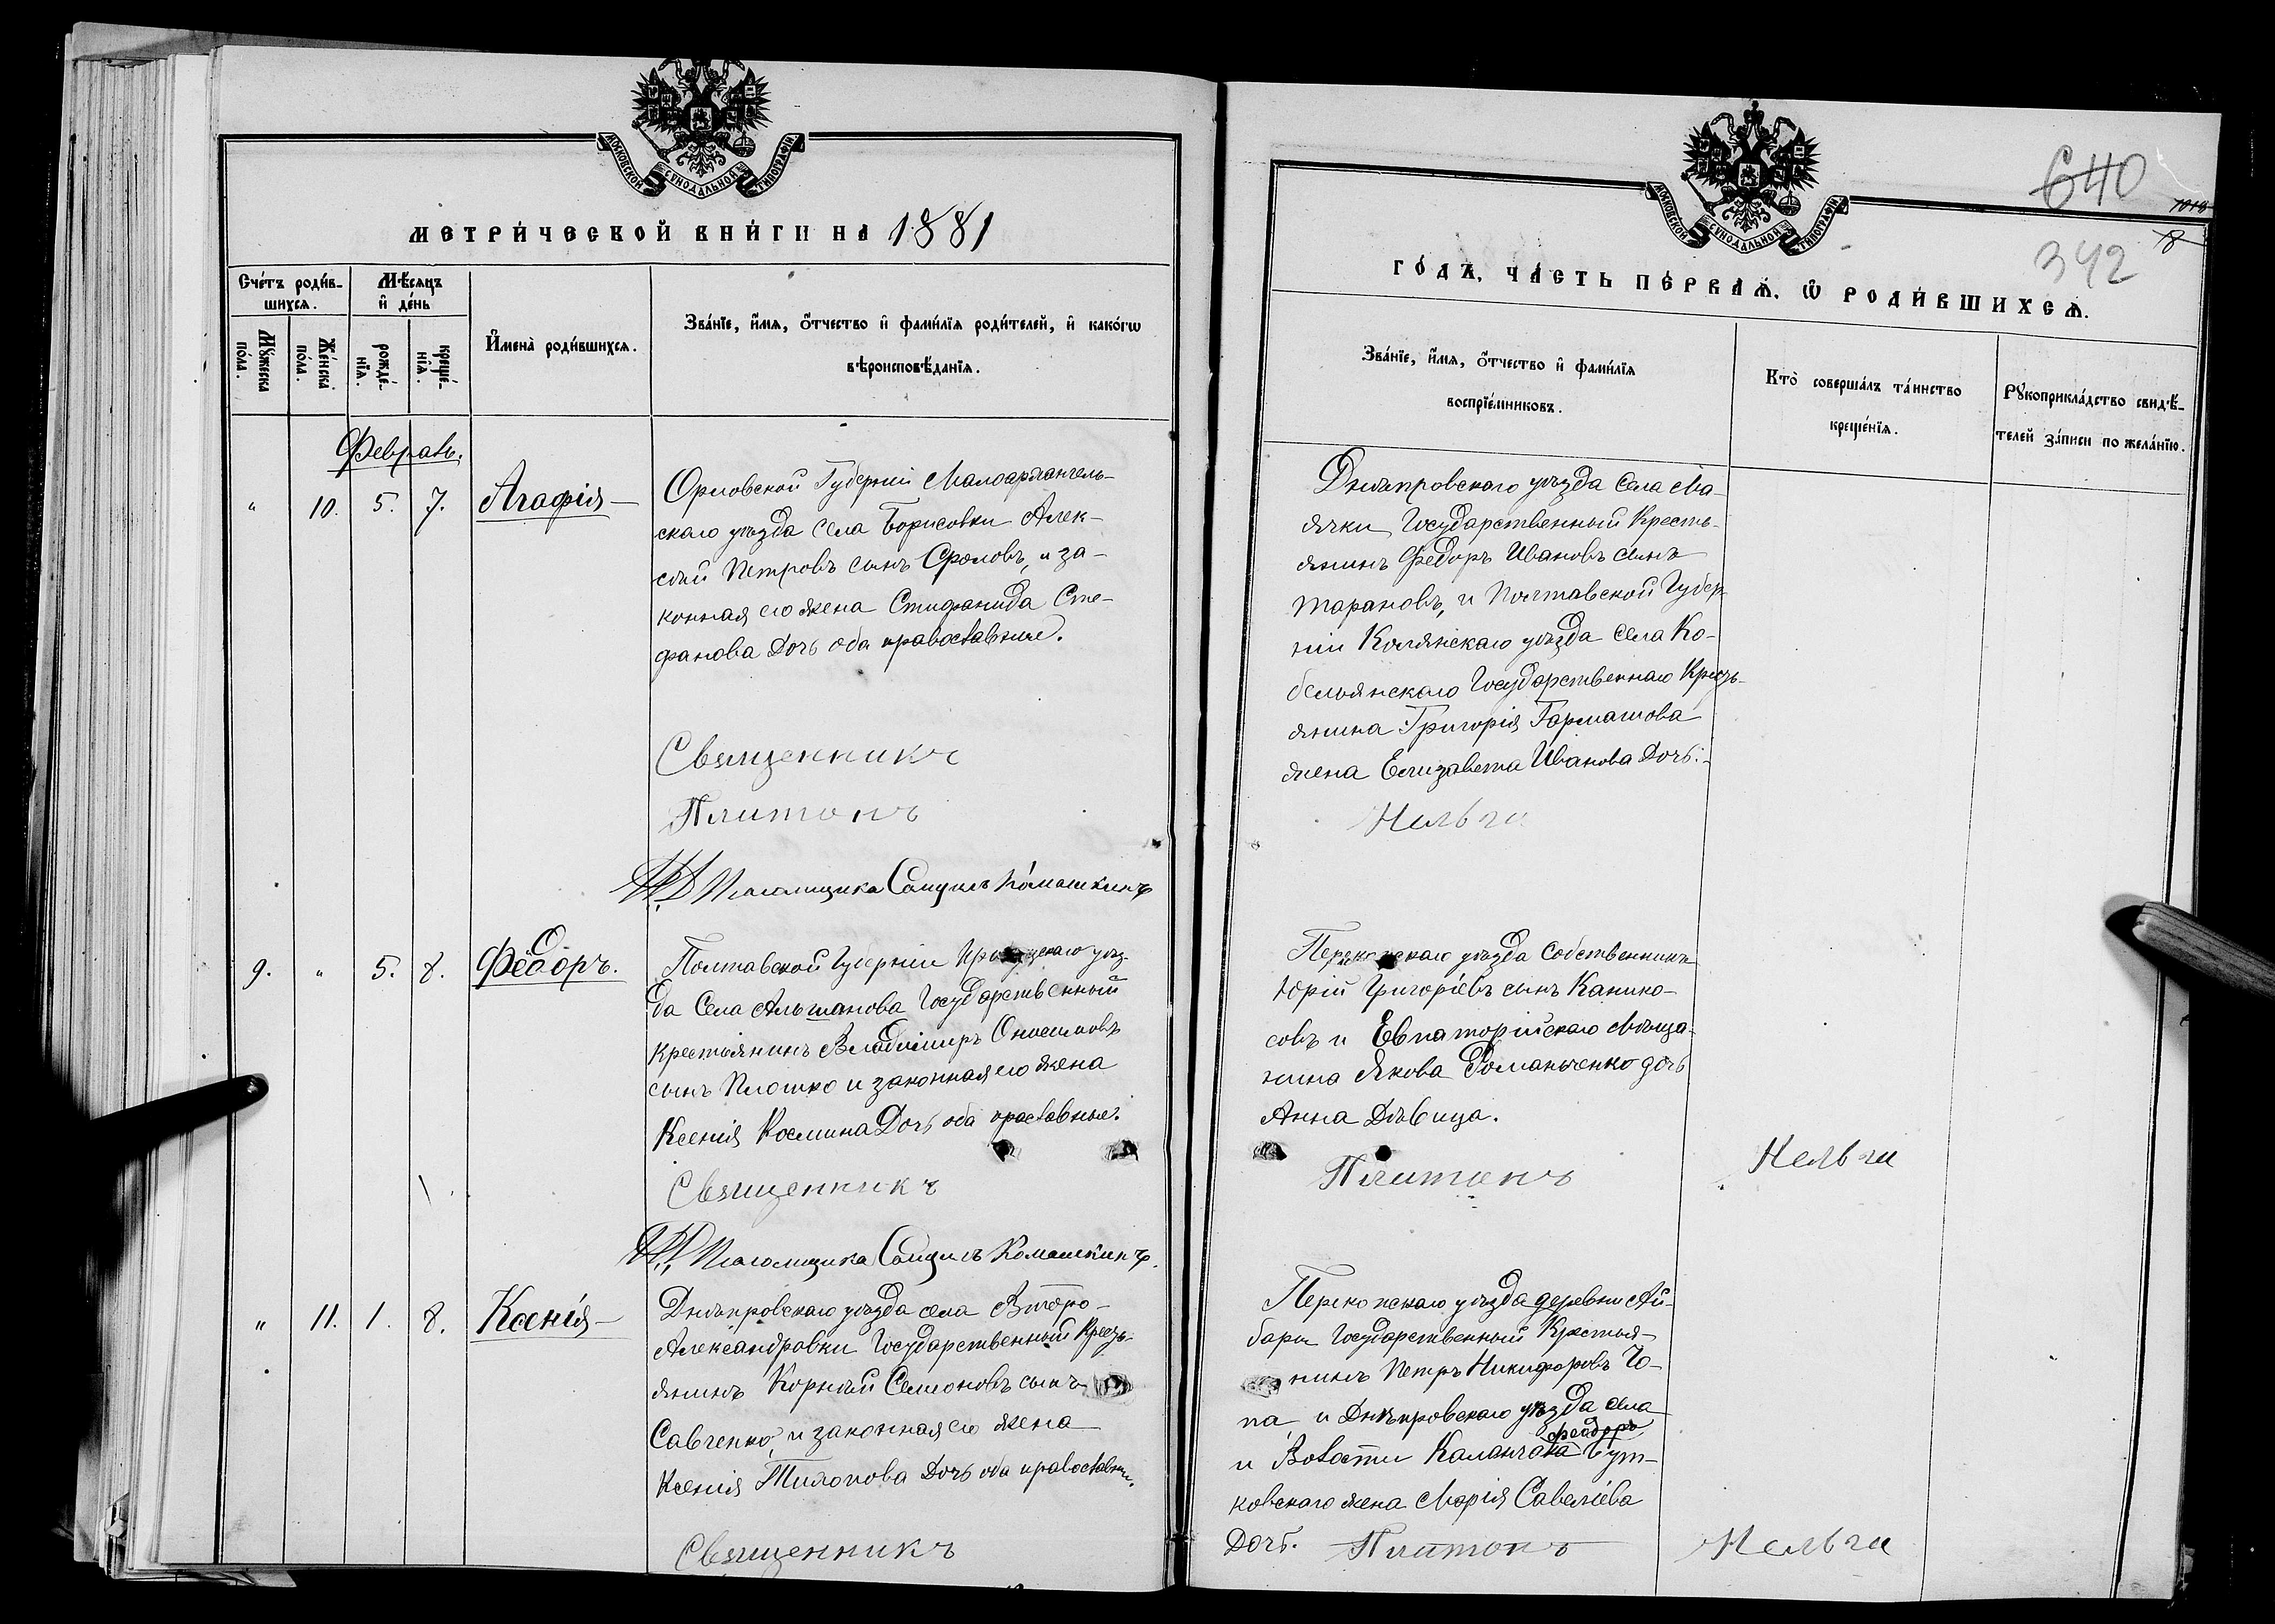 МОСКОВСКОЙ СѴНОДАЛЬНОЙ ТИПОГРАФІИ
МЕТРИ́ЧЕСКОЙ КНИ́ГИ НА 1881
Сче́тъ роди́в-
шихсѧ.
Мѣ́сѧцъ
и҆ де́нь
И҆мена̀ роди́вшихсѧ.
Зва́нїе, и҆́мѧ, ѻ҆́тчество и҆ фами́лїѧ роди́телей, и҆ како́гѡ
вѣроисповѣ́данїѧ.
Мꙋ́жеска
по́ла.
Же́нска
по́ла.
рожде́-
нїѧ.
креще́-
нїѧ.
Февраль.
" 10. 5. 7. Агафія
Орловской Губерніи Малоархангель-
скаго уѣзда села Борисовки Алек-
сѣй Петровъ сынъ Фроловъ, и за-
конная его жена Стифанида Сте-
фанова дочь оба православные.
Священникъ
Платонъ
Псаломщика Ромашкинъ
9. " 5. 8. Феодоръ.
Полтавской Губерніи уѣз-
да Села Альшанова Государственный
крестьянинъ Владимиръ Онисимовъ
сынъ Плошко и законная его жена
Ксенія Космина Дочь оба праславные.
Священникъ
Псаломщика Ромашкинъ
" 11. 1. 8. Ксенія
Днѣпровскаго уѣзда села Второ-
Александровки Государственный Кресть-
янинъ Корнѣй Семоновъ сынъ
Савченко, и законная его жена
Ксенія Дочь оба православн.
Священникъ
МОСКОВСКОЙ СѴНОДАЛЬНОЙ ТИПОГРАФІИ
640
1010
8
342
ГО́ДА, ЧА́СТЬ ПЕ́РВАѦ, Ѡ҆ РОДИ́ВШИХСѦ.
Зва́нїе, и҆́мѧ, ѻ҆́тчество и҆ фами́лїѧ
воспрїе́мниковъ.
Кто̀ соверша́лъ та́инство
креще́нїѧ.
Рꙋкоприкла́дство свидѣ́-
телей за́писи по жела́нїю.
Днѣпровскаго уѣзда села Ма-
ячки Государственный Кресть-
янинъ Федоръ Ивановъ сынъ
Тарановъ, и Полтавской Губер-
ніи уѣзда села Ко-
белянскаго Государственнаго Кресть-
янина Григорія Гармашова
жена Елизавета Иванова Дочь.
Перекопскаго уѣзда Собственникъ
Юрій Григоріевъ сынъ Канико-
совъ и Евпаторійскаго Мѣща-
нина Якова Романченко дочь
Анна Дѣвица.
Платонъ
Перекопскаго уѣзда деревни Ай-
бары Государственный Крестья-
нинъ Петръ Никифоровъ Чо-
па и Днѣпровскаго уѣзда села
Феодоръ
и Волости Каланчака Бут-
ковскаго жена Марія Савелиева
Дочь. Платонъ